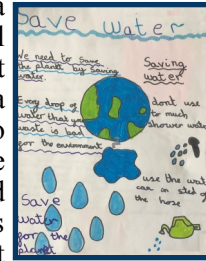 Save water
We need to save
the planet by saving
water.
Every drop of
water that you
waste is bad
for the environment
Saving
water
dont use
to much
shower water
use the wat
can on sted of
the hose
Save
water
for the
planet